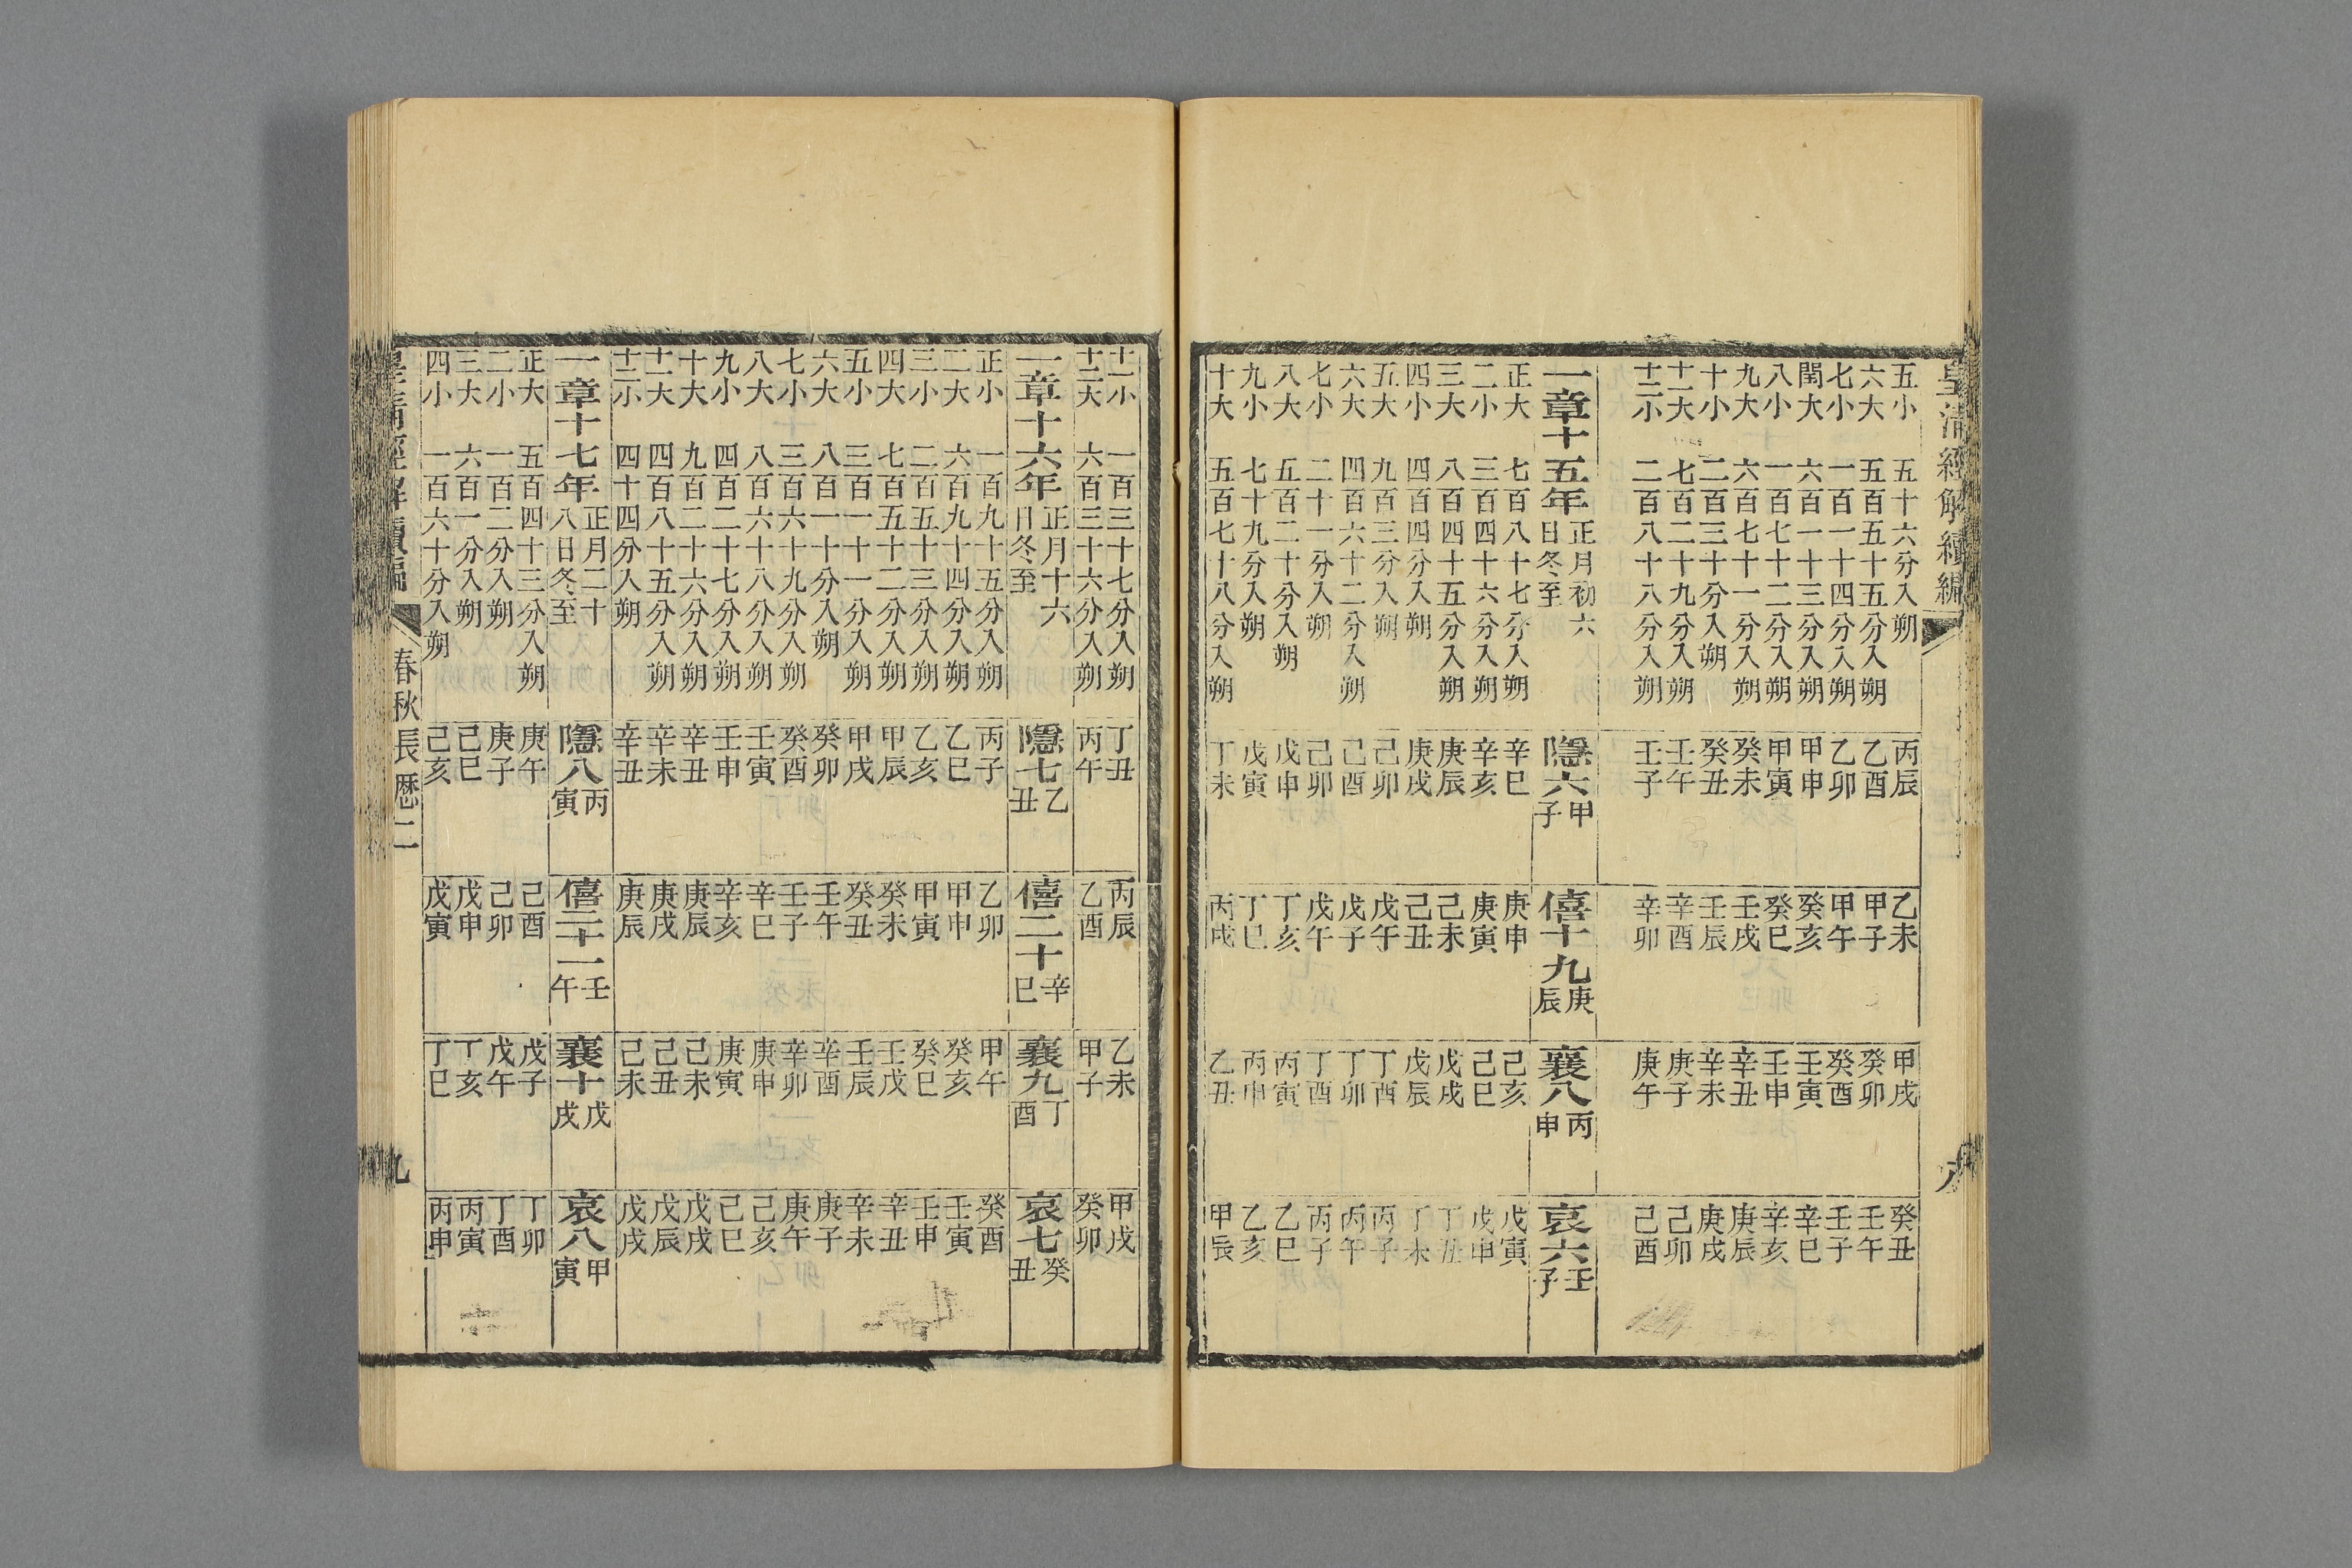 皇清經解續編 八
五小 五十六分入朔 丙辰 乙未 甲戌 癸丑
六大 五百五十五分入朔 乙酉 甲子 癸卯 壬午
七小 一百一十四分入朔 乙卯 甲午 癸酉 壬子
閏大 六百一十三分入朔 甲申 癸亥 壬寅 辛巳
八小 一百七十二分入朔 甲寅 癸巳 壬申 辛亥
九大 六百七十一分入朔 癸未 壬戌 辛丑 庚辰
十小 二百三十分入朔 癸丑 壬辰 辛未 庚戌
十一大 七百二十九分入朔 壬午 辛酉 庚子 己卯
十二小 二百八十八分入朔 壬子 辛卯 庚午 己酉
一章十五年 正月初六日冬至 隱六甲子 僖十九庚辰 襄八丙申 哀六壬子
正大 七百八十七分入朔 辛巳 庚申 己亥 戊寅
二小 三百四十六分入朔 辛亥 庚寅 己巳 戊申
三大 八百四十五分入朔 庚辰 己未 戊戌 丁丑
四小 四百四分入朔 庚戌 己丑 戊辰 丁未
五大 九百三分入朔 己卯 戊午 丁酉 丙子
六大 四百六十二分入朔 己酉 戊子 丁卯 丙午
七小 二十一分入朔 己卯 戊午 丁酉 丙子
八大 五百二十分入朔 戊申 丁亥 丙寅 乙巳
九小 七十九分入朔 戊寅 丁巳 丙申 乙亥
十大 五百七十八分入朔 丁未 丙戌 乙丑 甲辰
十一小 一百三十七分入朔 丁丑 丙辰 乙未 甲戌
十二大 六百三十六分入朔 丙午 乙酉 甲子 癸卯
一章十六年 正月十六日冬至 隱七乙丑 僖二十辛巳 襄九丁酉 哀七癸丑
正小 一百九十五分入朔 丙子 乙卯 甲午 癸酉
二大 六百九十四分入朔 乙巳 甲申 癸亥 壬寅
三小 二百五十三分入朔 乙亥 甲寅 癸巳 壬申
四大 七百五十二分入朔 甲辰 癸未 壬戌 辛丑
五小 三百一十一分入朔 甲戌 癸丑 壬辰 辛未
六大 八百一十分入朔 癸卯 壬午 辛酉 庚子
七小 三百六十九分入朔 癸酉 壬子 辛卯 庚午
八大 八百六十八分入朔 壬寅 辛巳 庚申 己亥
九小 四百二十七分入朔 壬申 辛亥 庚寅 己巳
十大 九百二十六分入朔 辛丑 庚辰 己未 戊戌
十一大 四百八十五分入朔 辛未 庚戌 己丑 戊辰
十二小 四十四分入朔 辛丑 庚辰 己未 戊戌
一章十七年 正月二十八日冬至 隱八丙寅 僖二十一壬午 襄十戊戌 哀八甲寅
正大 五百四十三分入朔 庚午 己酉 戊子 丁卯
二小 一百二分入朔 庚子 己卯 戊午 丁酉
三大 六百一分入朔 己巳 戊申 丁亥 丙寅
四小 一百六十分入朔 己亥 戊寅 丁巳 丙申
皇清經解續編 春秋長歷二 九